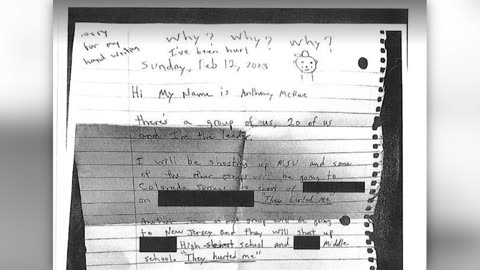 sorry
for my
hand writing
why? why? why?
I've been hurt
Sunday, Feb 12, 2023
Hi My Name is Anthony McRae
there's a group of us, 20 of us
and I'm the leader
I will be shooting up MSU and some
of the other group will be going to
Colorado Springs to shoot up
on "They hurted me"
Another team of my group will be going
to New Jersey and they will shoot up
High school and Middle
schools "They hurted me"